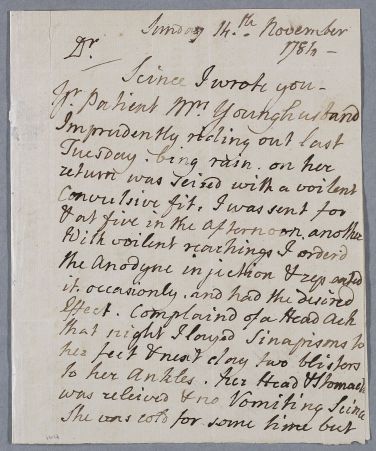 Sunday 14.th November
1784 -
Dr.
Scince I wrote you -
Yr. Patient Mrs. Younghusband
Imprudently riding out last
Tuesday. being rain. on her
return was Seized with a voilent
Convulsive fit. I was sent for
& at five in the afternoon. another
With voilent reachings I orderd
the Anodyne injiction & repeated
it. occasionly. and had the desired
Effect. Complaind of a Head Ach
that night I layed Sinapisons to
her feet & next day two blisters
to her Ankles. Her Head & Stomach
was releived & no Vomiting Scince
She was cold for some time but